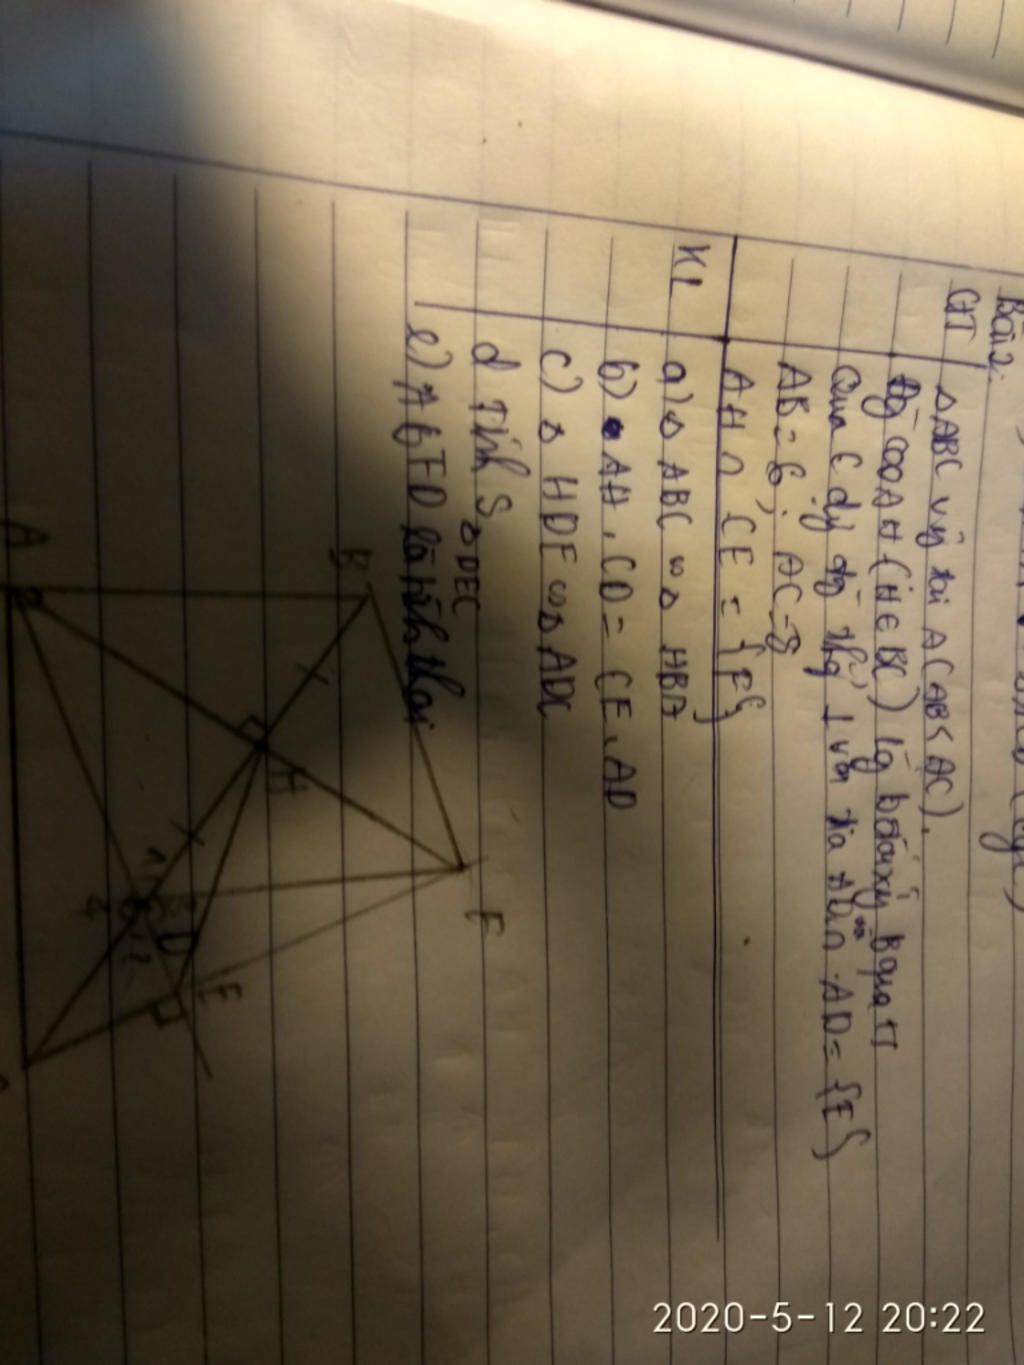 Bài 2:
GT
△ABC vg̃ tại A (AB < AC).
cao AH (H ∈ BC) lấy D đ/x B qua H
Qua C dg̃ thg̃ ⊥ với tia AD ∩ AD = {E}
AB = 6; AC = 8
AH ∩ CE = {F}
KL
a) △ ABC ∽ △ HBA
b) AH . CD = CE . AD
c) △ HDE ∽ △ ADC
d Tính S△DEC
e) ABFD là hình thoi
A
B
H
F
D
E
1
2
2020-5-12 20:22